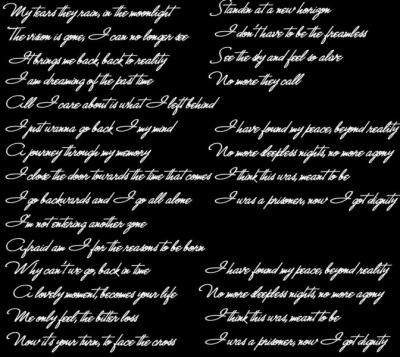 My tears they rain, in the moonlight
The vision is gone, I can no longer see
It brings me back, back to reality
I am dreaming of the past time
All I care about is what I left behind
I just wanna go back I my mind
A journey through my memory
I close the door towards the time that comes
I go backwards and I go all alone
I'm not entering another gone
Afraid am I for the reasons to be born
Why can't we go, back in time
A lovely moment, becomes your life
Me only feel, the bitter loss
Now it's your turn, to face the cross
Standin at a new horizon
I don't have to be the freamless
See the sky and feel so alive
No more they call
I have found my peace, beyond reality
No more sleepless nights, no more agony
I think this was, meant to be
I was a prisoner, now I got dignity
I have found my peace, beyond reality
No more sleepless nights, no more agony
I think this was, meant to be
I was a prisoner, now I got dignity